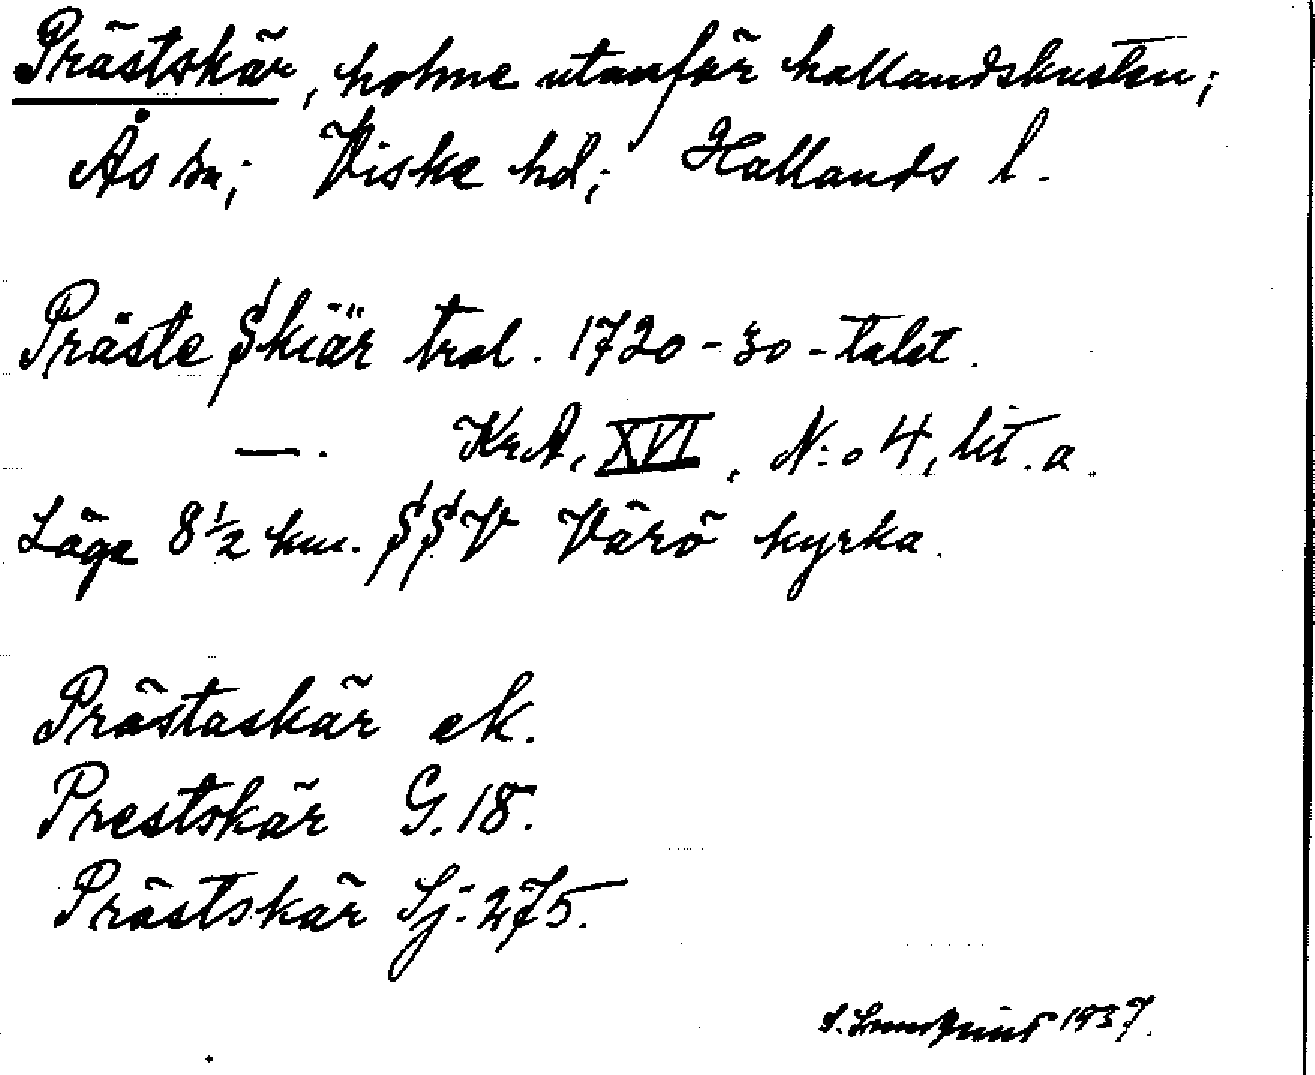 Prästskär, holme utanför hallandskusten;
Ås sn; Viske hd; Hallands l.
Präste Skiär trol. 1720-30-talet.
—. KrA, XVI, N:o 4, lit. a.
Läge 8½ km. SSV Värö kyrka.
Prästaskär ek.
Prestskär G. 18.
Prästskär Sj: 275.
S. Lundqvist 1937.